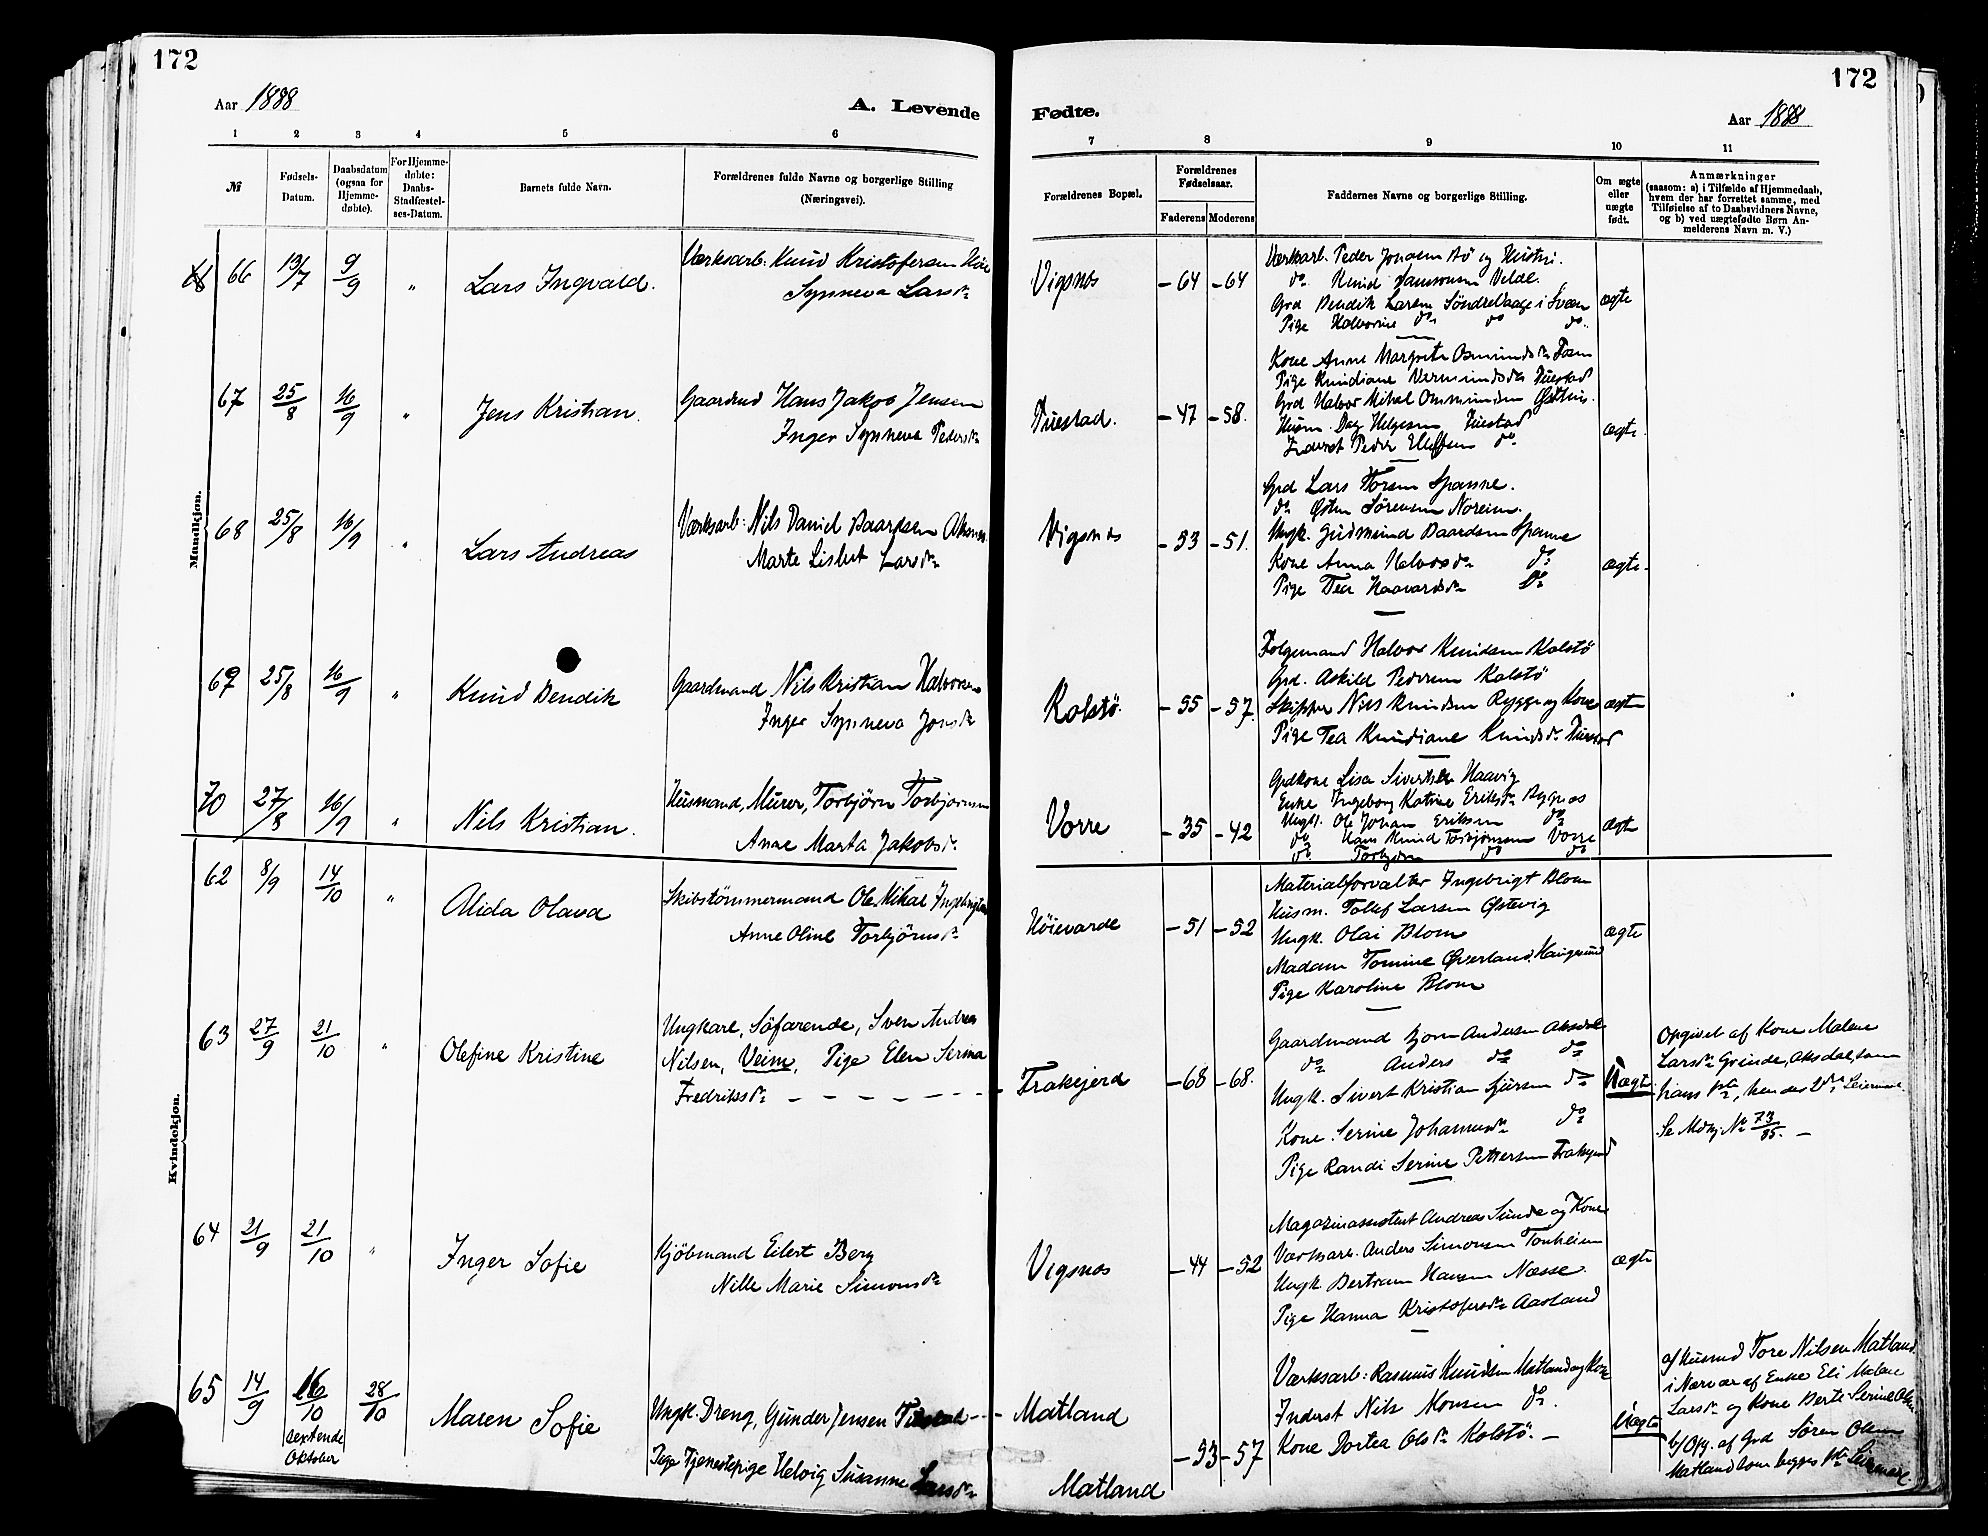 172
172
Aar 1888
A. Levende
Fødte.
Aar 1888
1 2 3 4 5 6 7 8 9 10 11
№
Fødsels-Datum.
Daabsdatum (ogsaa for Hjemme-døbte).
For Hjemme-døbte: Daabs-Stadfæstel-ses-Datum.
Barnets fulde Navn.
Forældrenes fulde Navne og borgerlige Stilling
(Næringsvei).
Forældrenes Bopæl.
Forældrenes Fødselsaar.
Faderens Moderens
Faddernes Navne og borgerlige Stilling.
Om ægte eller uægte født.
Anmærkninger
(saasom: a) i Tilfælde af Hjemmedaab,
hvem der har forrettet samme, med
Tilføielse af to Daabsvidners Navne,
og b) ved uægtefødte Børn An-
melderens Navn m. V.)
Mandkjøn.
66 13/7 9/9 " Lars Ingvald.
Værksarb: Knud Kristofersen
Synneva Larsdr
Vigsnes -64 -64
Værksarb. Peder Jonasen Bø og Hustru.
do Knud Samsonsen Velde.
Grd Bendik Larsen Søndre Vaage i Sveen
Pige Halvorine do do do
ægte
67 25/8 16/9 " Jens Kristian.
Gaardmd Hans Jakob Jensen
Inger Synneva Pedersdr
Tuestad. -47 -58.
Kone Anne Margrete Osmundsdr
Pige Knudiane Vermundsdr Tuestad
Grd Halvor Mikal Ommundsen Østhus.
Husm. Dag Helgesen Tuestad
Inderst Peder Elleffsen do
ægte.
68 25/8 16/9 " Lars Andreas
Værksarb: Nils Daniel Baardsen
Marte Lisbet Larsdr
Vigsnes -53 -51.
Grd Lars Toresen Spanne.
do Østen Sørensen Noreim.
Ungk. Gudmund Baardsen Spanne
Kone Anna Halvorsdr do
Pige Thea Haavardsdr do
ægte.
69 25/8 16/9 " Knud Bendik
Gaardmand Nils Kristian Halvorsen
Inger Synneva Jonsdr
Kolstø. -55 -57.
Folgemand Halvor Knudsen Kolstø
Grd. Askild Pedersen Kolstø
Skipper Nils Knudsen Rygge og Kone
Pige Tea Knudiane Knudsdr Tuestad
ægte
70 27/8 16/9 " Nils Kristian.
Husmand, Murer, Torbjørn Torbjørnsen
Anne Marta Jakobsdr
Vorre -35 -42
Grdkone Lisa Sivertsdr Haavig
Enke Ingeborg Katrine Eriksdr Bygnes
Ungk. Ole Johan Eriksen do
do Hans Knud Torbjørnsen Vorre
do Torbjørn do do
ægte
Kvindekjøn.
62 8/9 14/10 " Alida Olava
Skibstømmermand Ole Mikal Ingebrigtsen
Anne Oline Torbjørnsdr
Høievarde -51 -52
Materialforvalter Ingebrigt Blom
Husm. Tollef Larsen Østevig
Ungk. Olai Blom
Madam Tomine Øverland, Haugesund
Pige Karoline Blom
ægte
63 27/9 21/10 " Olefine Kristine
Ungkarl, Søfarende, Sven Andreas
Nilsen, Veim, Pige Elen Serina
Fredriksdr
Frakejerd -68 -68.
Gaardmand Bjørn Andersen Aksdal
do Anders do do
Ungk. Sivert Kristian Sjursen do
Kone Serine Johannesdr do
Pige Randi Serine Pettersen Frakejerd
Uægte
Opgivet af Kone Malene
Larsdr Grinde, Aksdal, som
hans 1ste, hendes 2det Leiermaal
Se Mdkj № 73/85.
64 21/9 21/10 " Inger Sofie
Kjøbmand Eilert Berg
Nille Marie Simonsdr
Vigsnes -44 -52
Magazinassistent Andreas Sunde og Kone
Værksarb. Anders Simonsen Tonheim
Ungk. Bertram Hansen Næsse.
Pige Hanna Kristofersdr Aasland
ægte
65 14/9 16/10 28/10 Maren Sofie
sextende
Oktober
Ungk. Dreng, Gunder Jensen
Pige Tjenestepige Helvig Susanne Larsdr
Matland
Matland
-53 -57
Værksarb: Rasmus Knudsen Matland og Kone
Inderst Nils Monsen do.
Kone Dortea Olsdr Kolstø.
Uægte
a) Husmd Tore Nilsen Matland
i Nærvær af Enke Eli Malene
Larsdr og Kone Berte Serine Olsdr
b) Opg. af Grd Søren Olsen
Matland som begges 1ste Leiermaal.